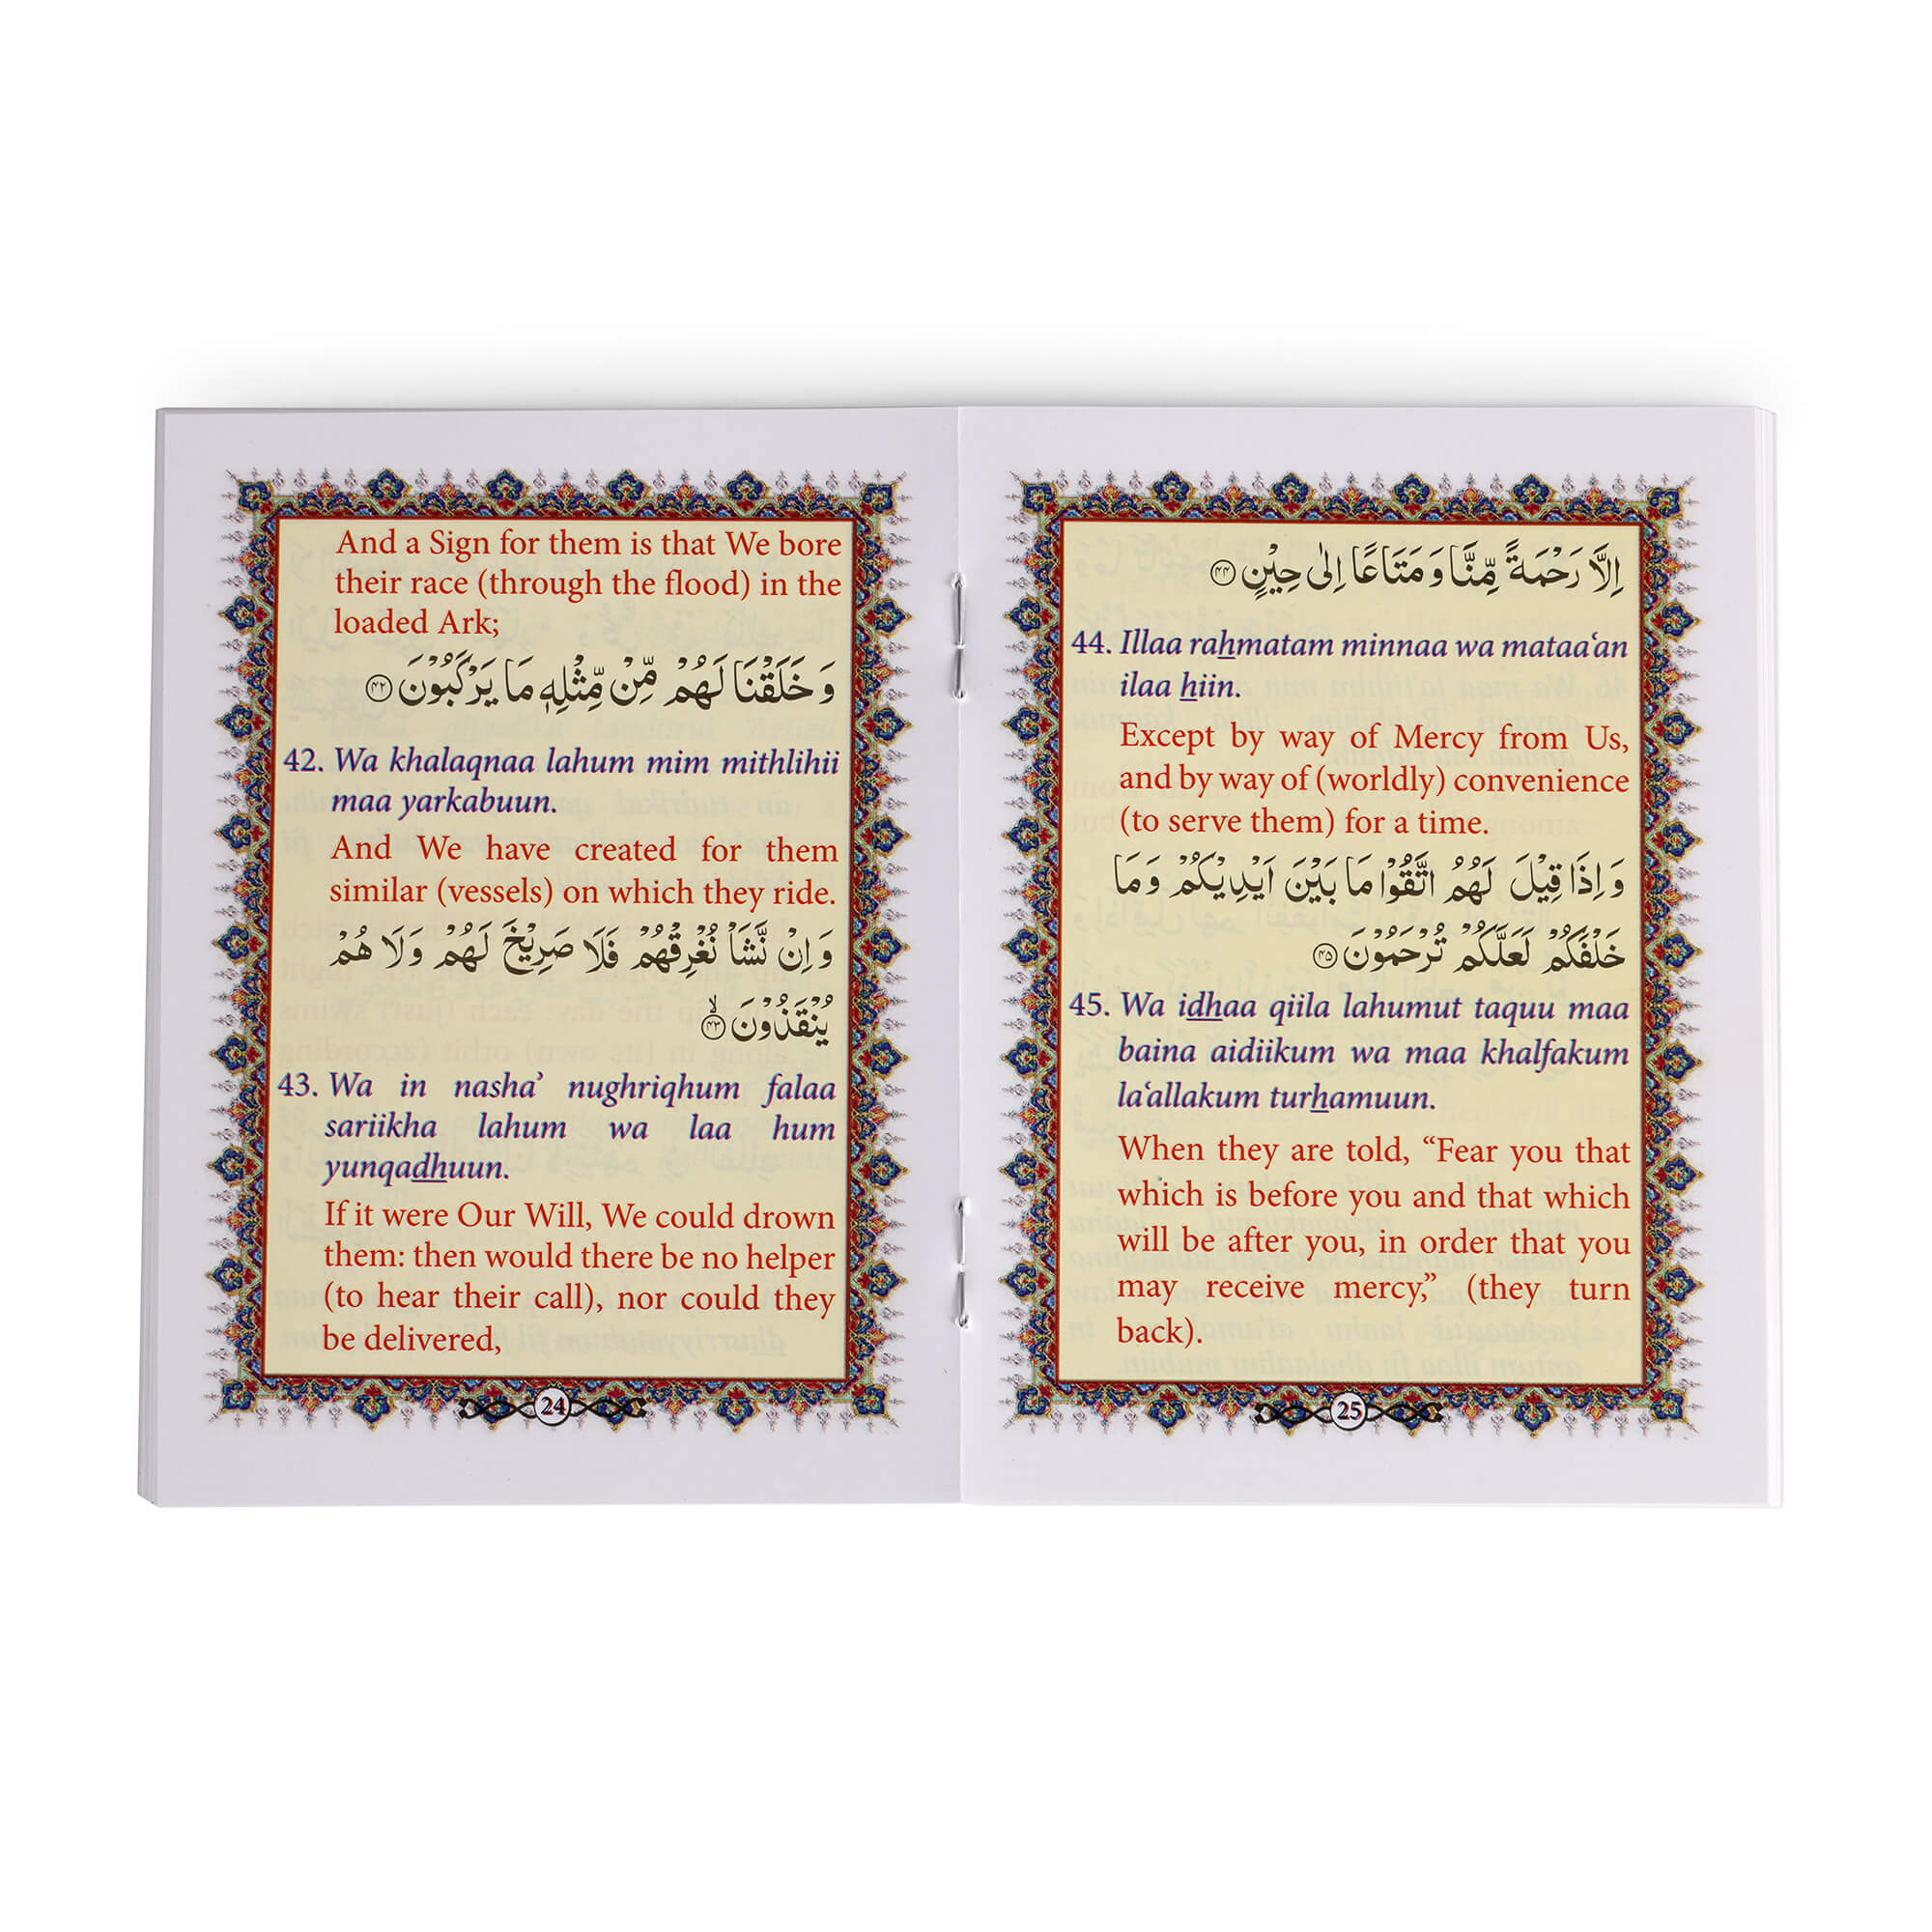 And a Sign for them is that We bore
their race (through the flood) in the
loaded Ark;
وَخَلَقْنَا لَهُمْ مِّنْ مِّثْلِهٖ مَا يَرْكَبُوْنَ ﴿۴۲﴾
42. Wa khalaqnaa lahum mim mithlihii
maa yarkabuun.
And We have created for them
similar (vessels) on which they ride.
وَاِنْ نَّشَاْ نُغْرِقْهُمْ فَلَا صَرِيْخَ لَهُمْ وَلَا هُمْ
يُنْقَذُوْنَ ﴿۴۳﴾ۙ
43. Wa in nasha’ nughriqhum falaa
sariikha lahum wa laa hum
yunqadhuun.
If it were Our Will, We could drown
them: then would there be no helper
(to hear their call), nor could they
be delivered,
24
اِلَّا رَحْمَةً مِّنَّا وَمَتَاعًا اِلٰى حِيْنٍ ﴿۴۴﴾
44. Illaa rahmatam minnaa wa mataa‘an
ilaa hiin.
Except by way of Mercy from Us,
and by way of (worldly) convenience
(to serve them) for a time.
وَاِذَا قِيْلَ لَهُمُ اتَّقُوْا مَا بَيْنَ اَيْدِيْكُمْ وَمَا
خَلْفَكُمْ لَعَلَّكُمْ تُرْحَمُوْنَ ﴿۴۵﴾
45. Wa idhaa qiila lahumut taquu maa
baina aidiikum wa maa khalfakum
la‘allakum turhamuun.
When they are told, “Fear you that
which is before you and that which
will be after you, in order that you
may receive mercy,” (they turn
back).
25